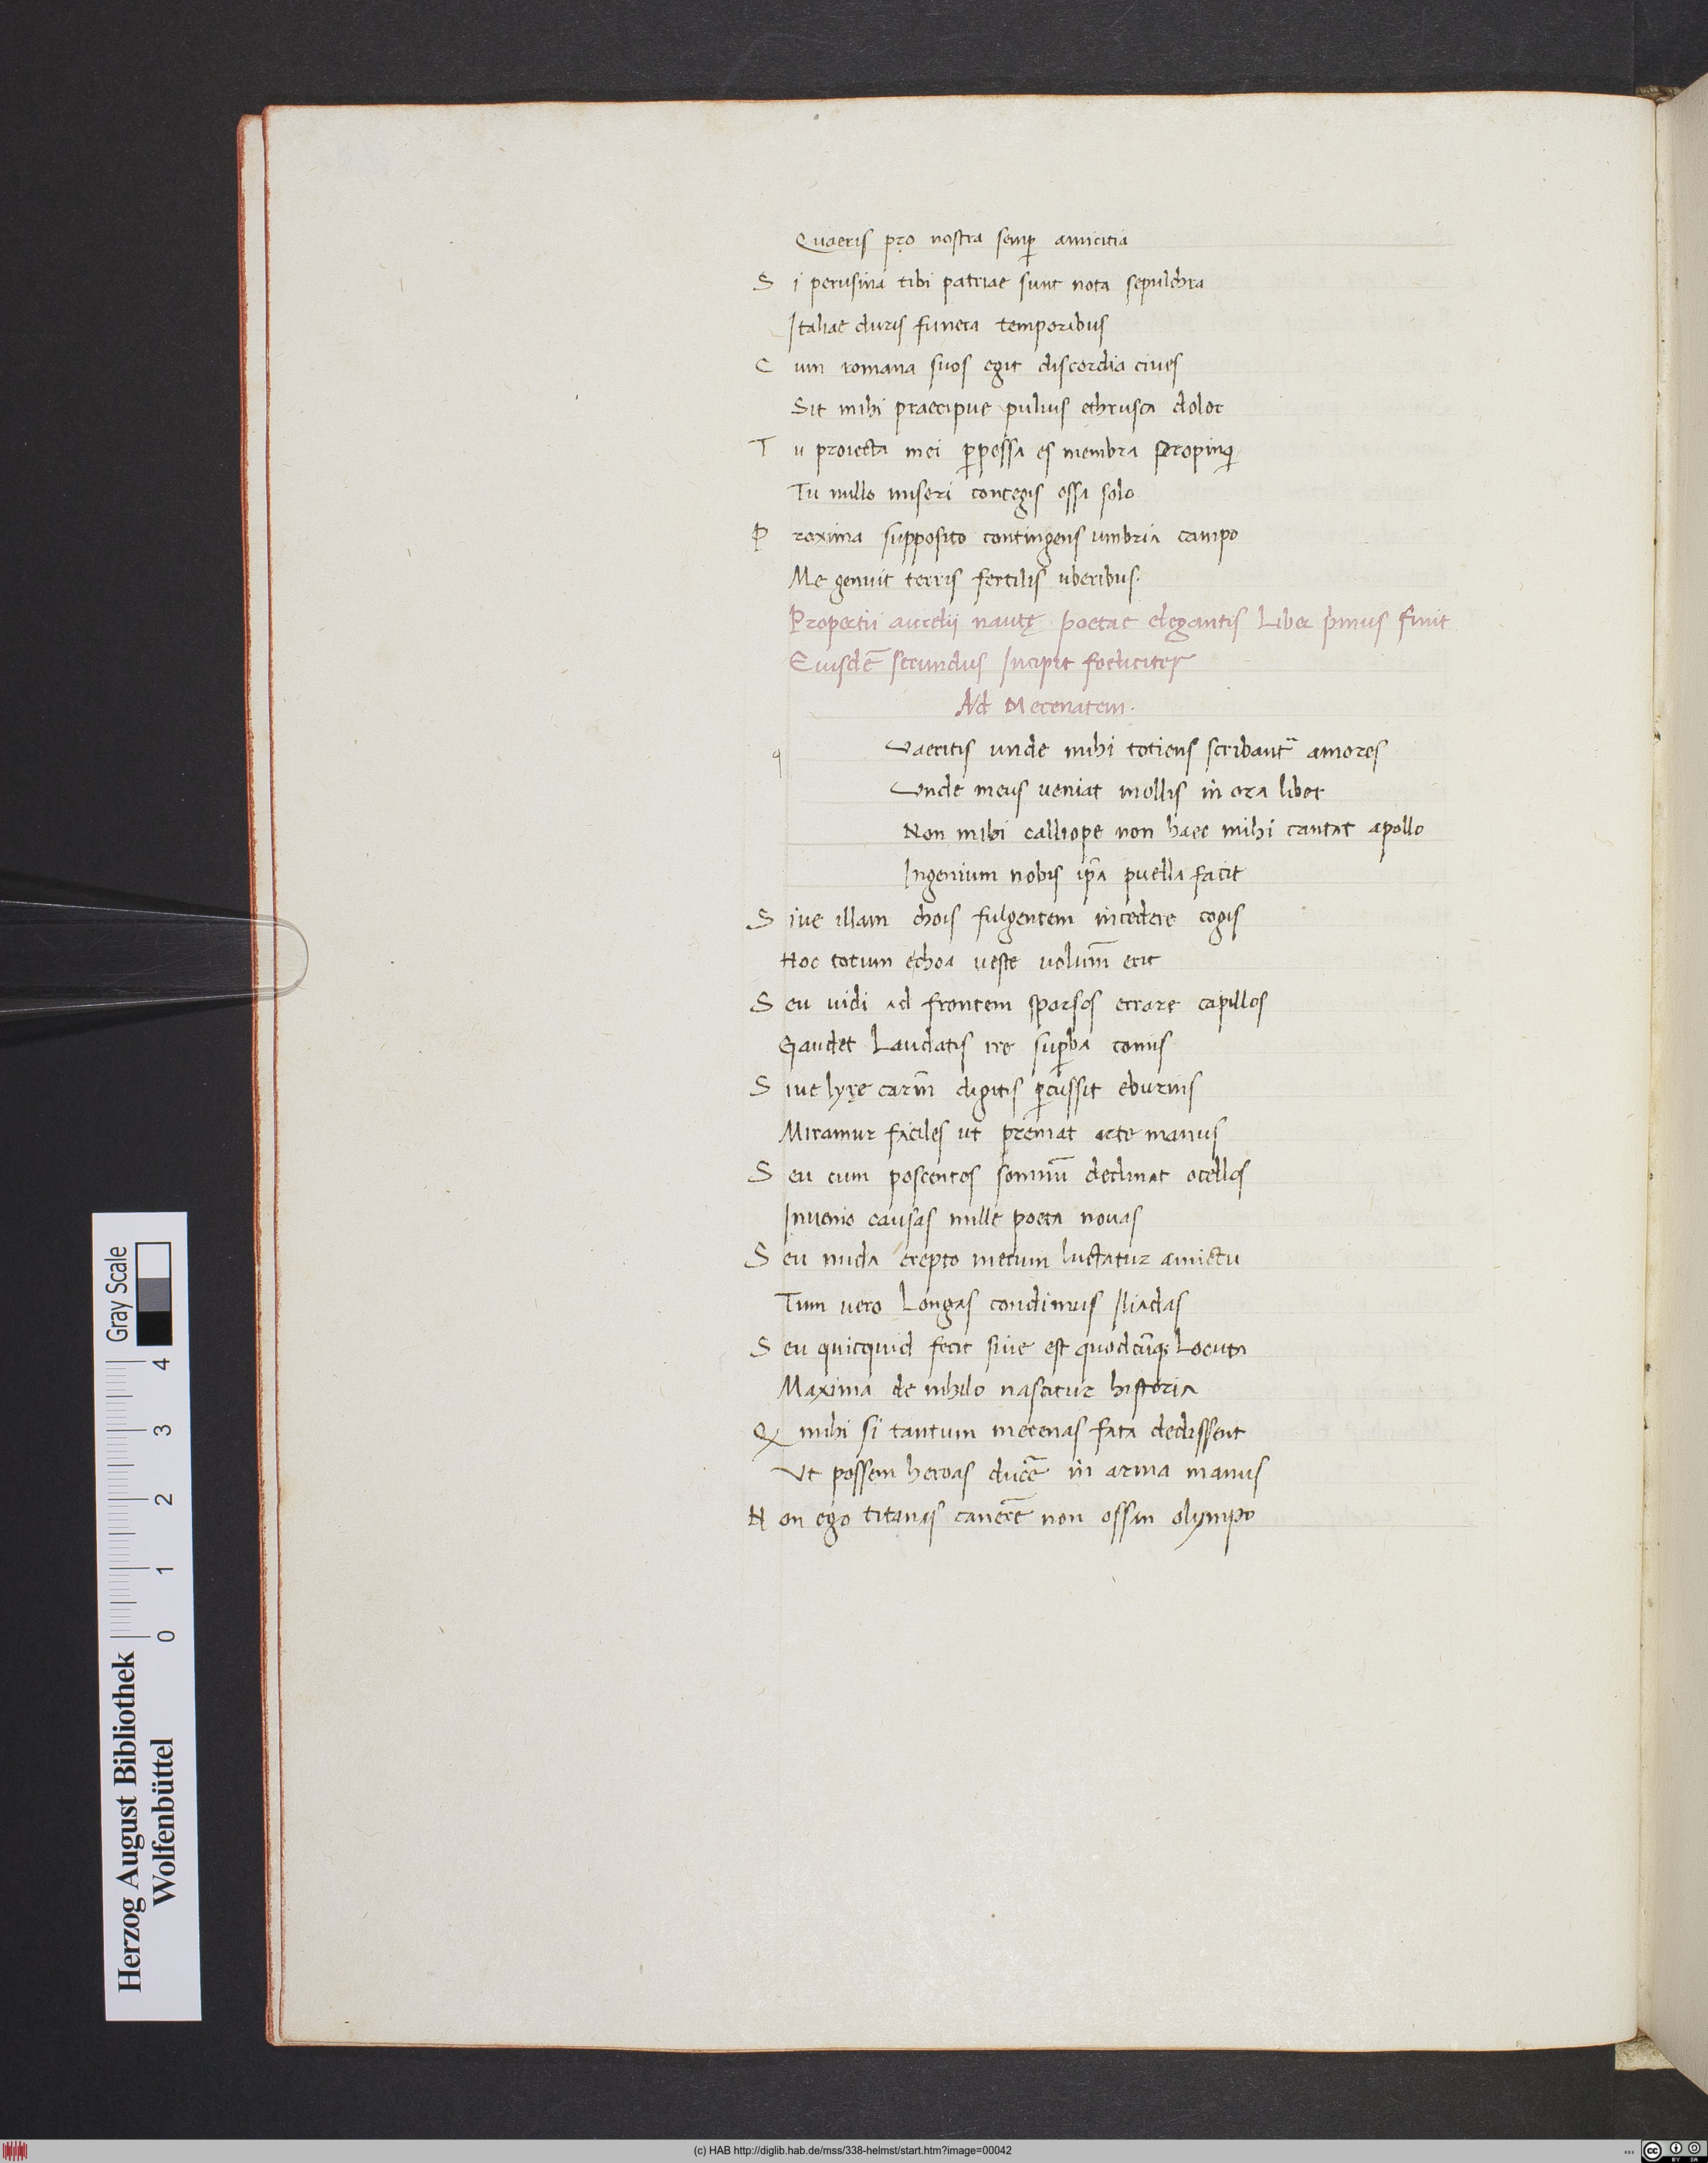 Quaeris pro nostra semp̄ amicitia
Si perusina tibi patriae sunt nota sepulchra
Italiae duris funera temporibus
Cum romana suos egit discordia cives
Sit mihi praecipue puluis ethrusca dolor
Tu proiecta mei ꝑpessa es membra
Tu nullo miseri contegis ossa solo
Proxima supposito contingens umbria campo
Me genuit terris fertilis uberibus.
Propertii aurelii nautę poetae elegantis Liber pͥmus finit
Eiusdē secundus Incipit foeliciter
Ad Mecenatem.
qVaeritis unde mihi totiens scribant᷑ amores
Vnde meus ueniat mollis in ora liber
Non mihi calliope non haec mihi cantat apollo
Ingenium nobis ip̄a puella facit
Siue illam chois fulgentem incedere cogis
Hoc totum echoa ueste volum̄ erit
Seu uidi ad frontem sparsos errare capillos
Gaudet Laudatis ire suꝑba comis
Siue lyrę carm̄ digitis ꝑcussit eburnis
Miramur faciles ut premat arte manus
Seu cum poscentes somnū declinat ocellos
Inuenio causas mille poeta nouas
Seu nuda erepto mecum luctatur amictu
Tum uero Longas condimus Iliadas
Seu quicquid fecit siue est quodcūq; Locuta
Maxima de nihilo nascitur historia
Qͣ mihi si tantum mecenas fata dedissent
Vt possem heroas ducē in arma manus
Non ego titanas canerē non ossan olympo
Gray Scale
0 1 2 3 4
Herzog August Bibliothek
Wolfenbüttel
(c) HAB http://diglib.hab.de/mss/338-helmst/start.htm?image=00042